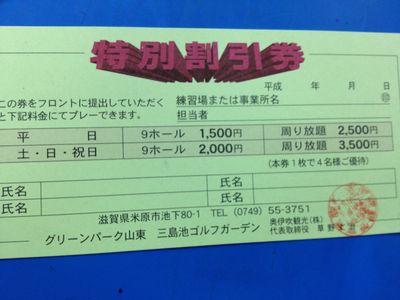 特別割引券
平成 年 月 日
この券をフロントに提出していただく
と下記料金にてプレーできます。
練習場または事業所名 ㊞
担当者
平 日 9ホール 1,500円 周り放題 2,500円
土・日・祝日 9ホール 2,000円 周り放題 3,500円
(本券1枚で4名様ご優待)
氏名 氏名
氏名 氏名
滋賀県米原市池下80-1 TEL (0749) 55-3751
グリーンパーク山東 三島池ゴルフガーデン
奥伊吹観光(株)
代表取締役 草野丈